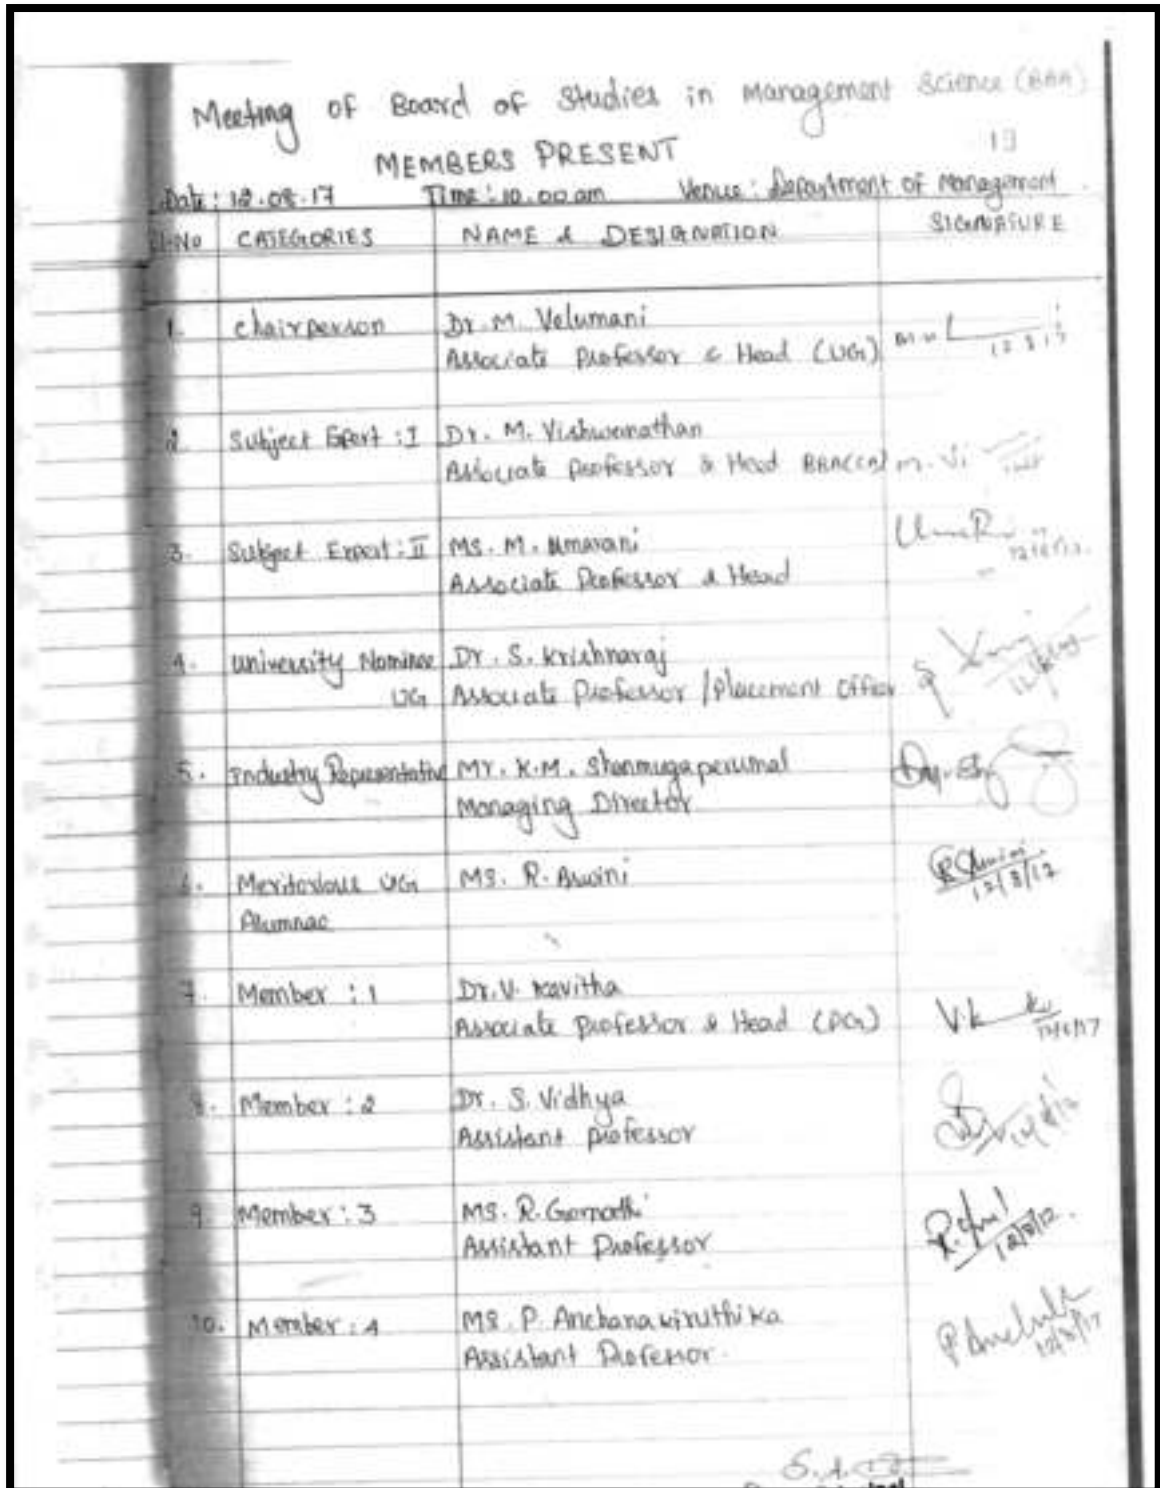 Meeting of Board of Studies in Management Science (BBA)
19
MEMBERS PRESENT
Date: 12.08.17 Time: 10.00 am Venue: Department of Management
Sl.No CATEGORIES NAME & DESIGNATION SIGNATURE
1. Chairperson Dr. M. Velumani
Associate Professor & Head (UG)
12.8.17
2. Subject Expert: I Dr. M. Vishwanathan
Associate Professor & Head
M. Vi
3. Subject Expert: II Ms. M. Umarani
Associate Professor & Head
4. University Nominee Dr. S. Krishnaraj
UG Associate Professor / Placement Officer
5. Industry Representative Mr. K.M. Shanmugaperumal
Managing Director
6. Meritorious UG Ms. R. Aswini
12/8/17
Alumnae
7. Member : 1 Dr. V. Kavitha
Associate Professor & Head (PG) V.k
8. Member : 2 Dr. S. Vidhya
Assistant Professor
9. Member : 3 Ms. R. Gomathi
Assistant Professor 12/8/17.
10. Member : 4 Ms. P. Anchana Kiruthika
Assistant Professor. 12/8/17